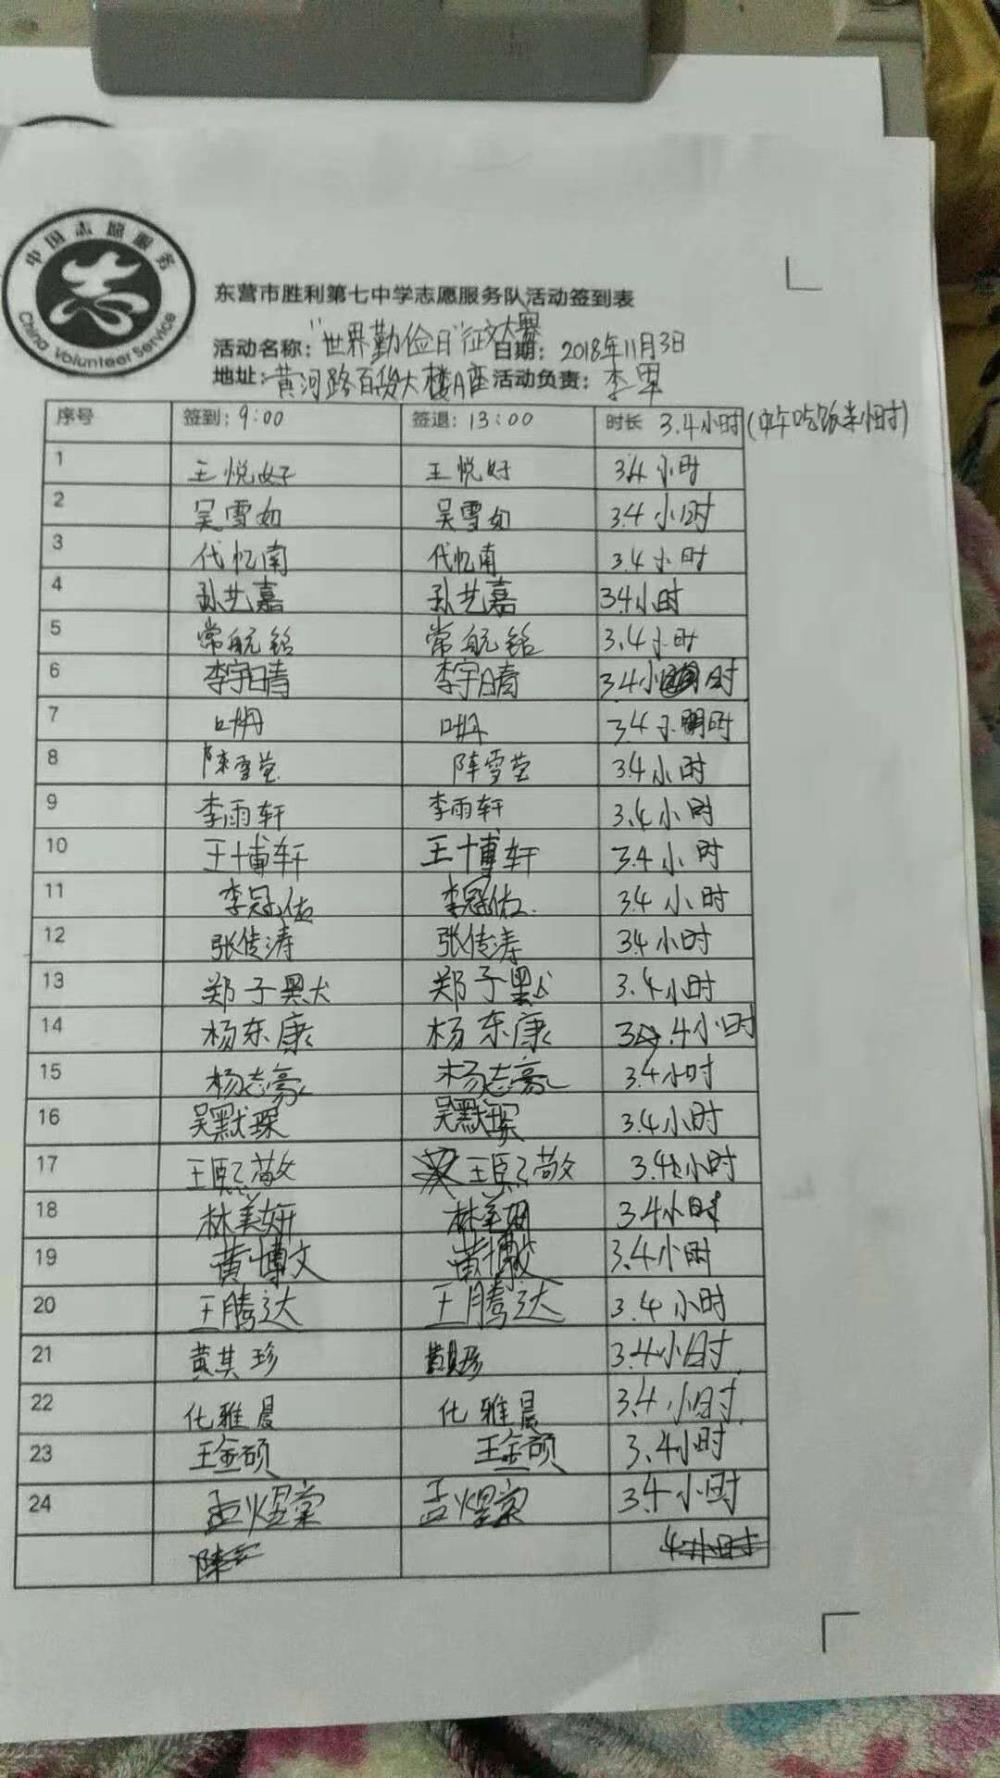 中国志愿服务
China Volunteer Service
东营市胜利第七中学志愿服务队活动签到表
活动名称："世界勤俭日"征文大赛 日期：2018年11月3日
地址：黄河路百货大楼A座 活动负责：李
序号 签到：9:00 签退：13:00 时长 3.4小时(中午吃饭半小时)
1 王悦好 王悦好 3.4小时
2 吴雪如 吴雪如 3.4小时
3 代忆南 代忆南 3.4小时
4 孙艺嘉 孙艺嘉 3.4小时
5 常航铭 常航铭 3.4小时
6 李宇晴 李宇晴 3.4小时
7 叶姗 叶 3.4小时
8 陈雪莹 陈雪莹 3.4小时
9 李雨轩 李雨轩 3.4小时
10 王博轩 王博轩 3.4小时
11 李冠佑 李冠佑 3.4小时
12 张传涛 张传涛 3.4小时
13 郑子默 郑子默 3.4小时
14 杨东康 杨东康 3.4小时
15 杨志豪 杨志豪 3.4小时
16 吴默琛 吴默琛 3.4小时
17 王熙敬 王熙敬 3.4小时
18 林美妍 林美妍 3.4小时
19 黄博文 黄博文 3.4小时
20 王腾达 王腾达 3.4小时
21 黄其珍 黄其珍 3.4小时
22 化雅晨 化雅晨 3.4小时
23 王金硕 王金硕 3.4小时
24 孟煜棠 孟煜棠 3.4小时
4小时